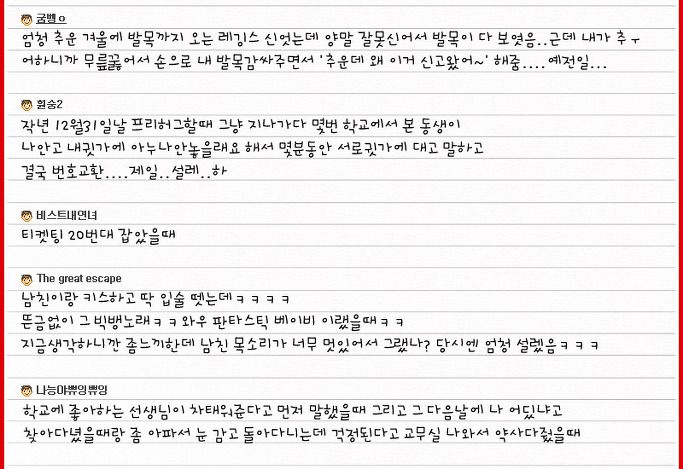 굼벵ㅇ
엄청 추운 겨울에 발목까지 오는 레깅스 신엇는데 양말 잘못신어서 발목이 다 보엿음..근데 내가 추ㅜ
어하니까 무릎꿇어서 손으로 내 발목감싸주면서 '추운데 왜 이거 신고왔어~' 해줌....예전일...
훤숭2
작년 12월31일날 프리허그할때 그냥 지나가다 몇번 학교에서 본 동생이
나안고 내귓가에 아누나안놓을래요 해서 몇분동안 서로귓가에 대고 말하고
결국 번호교환....제일..설레..하
비스트내연녀
티켓팅 20번대 잡았을때
The great escape
남친이랑 키스하고 딱 입술 뗏는데ㅋㅋㅋㅋ
뜬금없이 그 빅뱅노래ㅋㅋ와우 판타스틱 베이비 이랬을때ㅋㅋ
지금생각하니깐 좀느끼한데 남친 목소리가 너무 멋있어서 그랬나? 당시엔 엄청 설렜음ㅋㅋㅋ
나능야쀼잉쀼잉
학교에 좋아하는 선생님이 차태워준다고 먼저 말했을때 그리고 그 다음날에 나 어딨냐고
찾아다녔을때랑 좀 아파서 눈 감고 돌아다니는데 걱정된다고 교무실 나와서 약사다줬을때